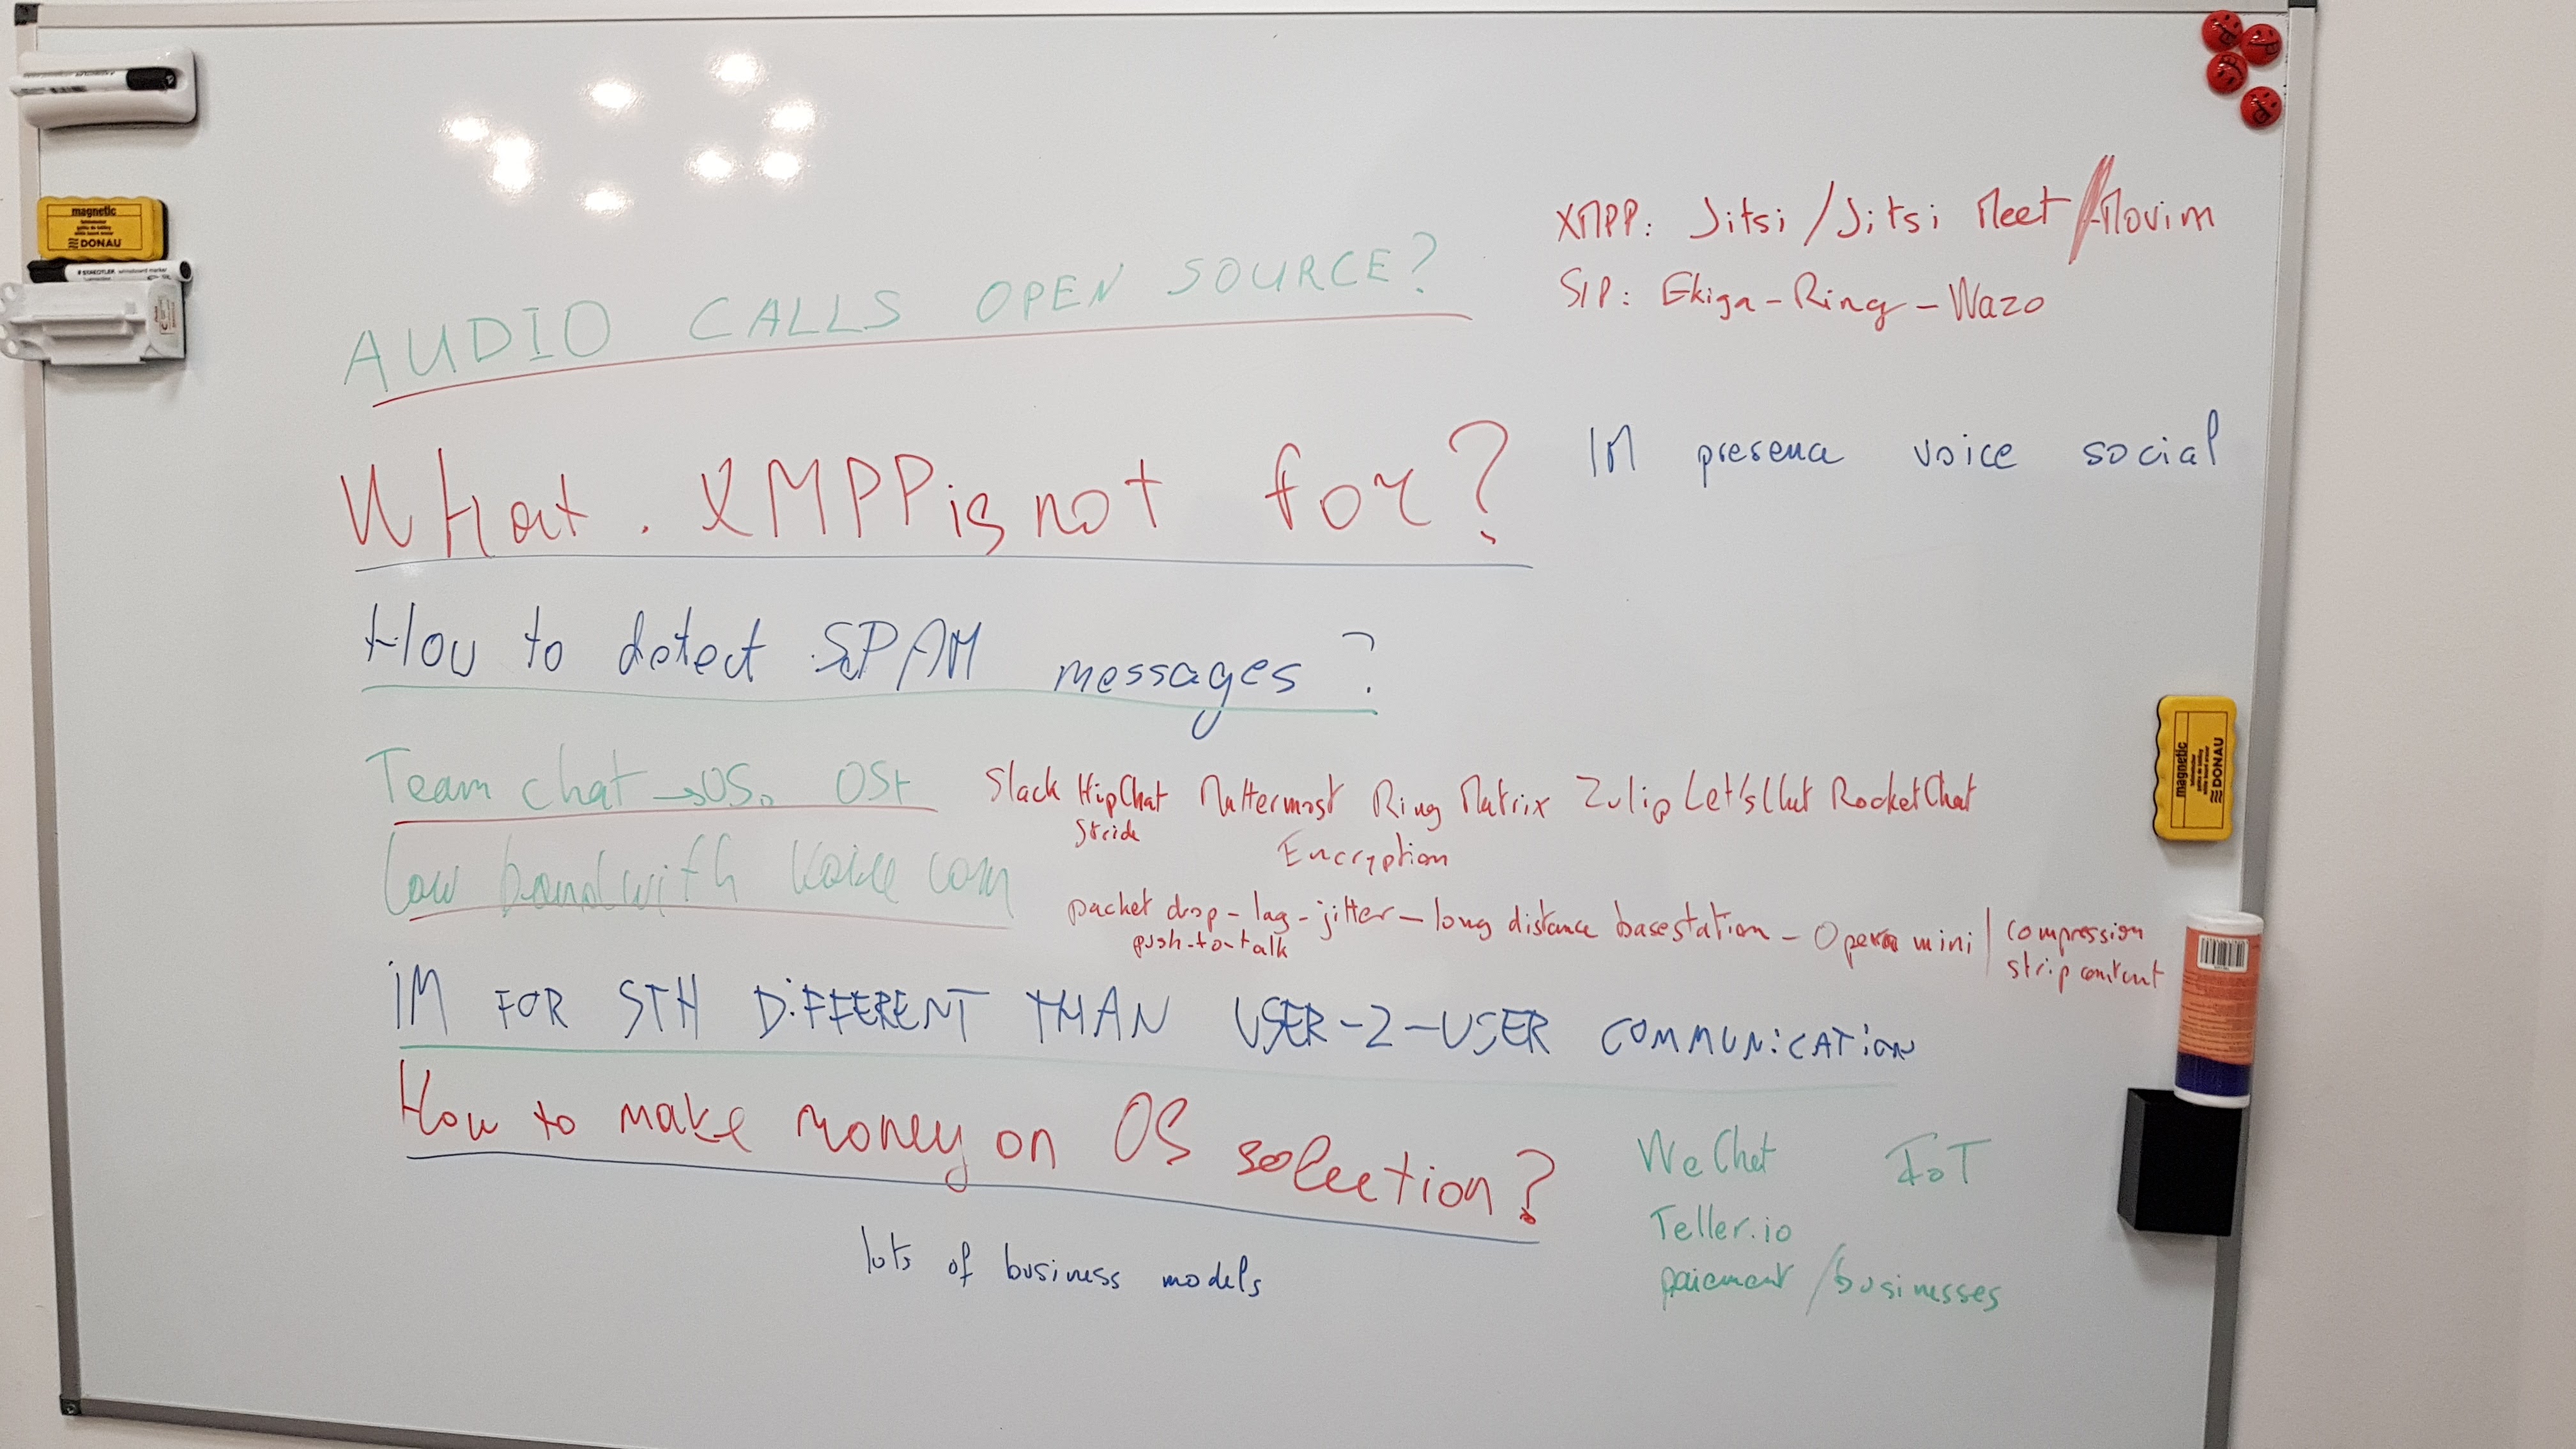 magnetic
DONAU
STAEDTLER
XMPP: Jitsi / Jitsi Meet / Movim
AUDIO CALLS OPEN SOURCE?
SIP: Ekiga - Ring - Wazo
What XMPP is not for?
IM presence voice social
How to detect SPAM messages?
Team chat → OS
Slack HipChat Mattermost Ring Matrix Zulip Let'sChat RocketChat
Stride
Encryption
Low bandwith voice com
packet drop - lag - jitter - long distance basestation - Opera mini | compression
push-to-talk
strip content
IM FOR STH DIFFERENT THAN USER-2-USER COMMUNICATION
How to make money on OS solection?
lots of business models
WeChat IoT
Teller.io
paiement / businesses
magnetic
DONAU